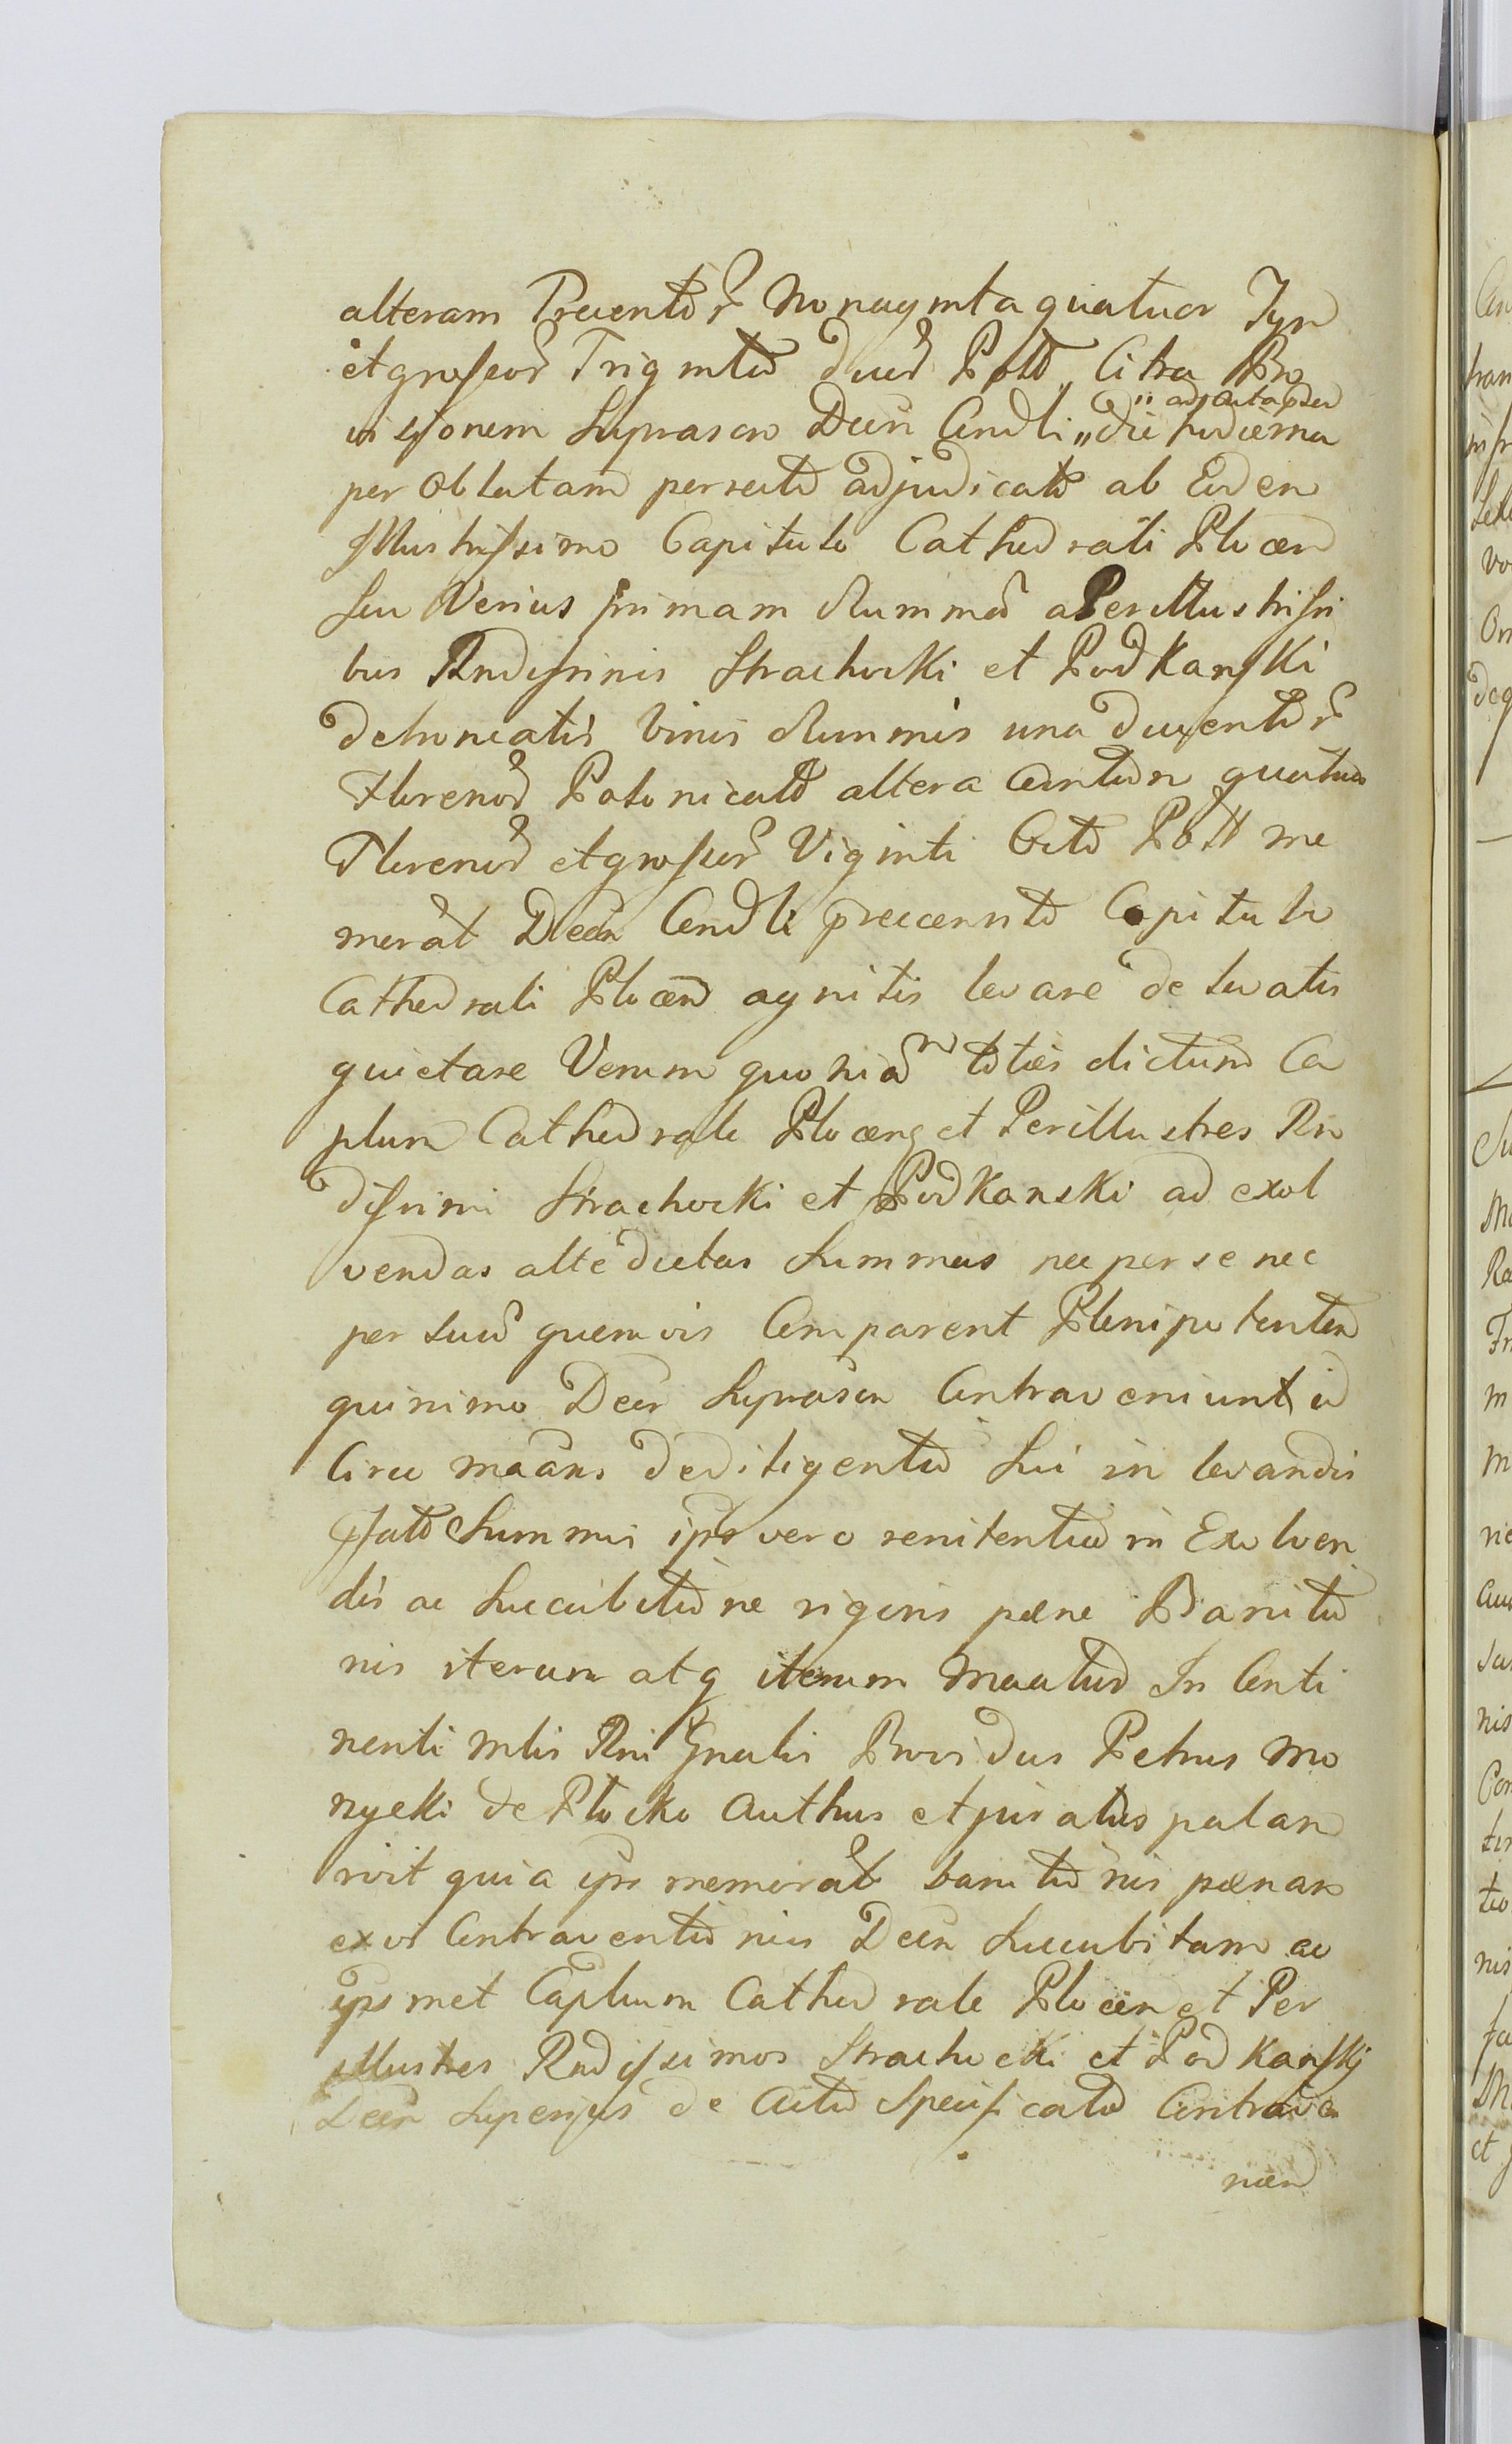 alteram Trecentor Nonaginta quatuor Tyn
et grossor Triginta duor Poll Citra Pro
visionem Suprascr Decr Condli " die hodierna
" ad acta pden
per Oblatam perrecto adjudicat ab Eoden
Illustrissimo Capitulo Cathedrali Plocen
seu Verius primam Summam a Perillustrissi
bus Rndissimis Strachocki et Podkanski
detruncatis binis Summis una ducentor
Florenor Polonicali altera Centum quatuor
Florenor et grossor Viginti Octo Poll me
morat Decr Condli praecensito Capitulo
Cathedrali Plocen agnitis levare de levatis
quietare Verum quoniam toties dictum Ca
plum Cathedrale Plocen et Perillustres Rn
dissimi Strachocki et Podkanski ad exol
vendas alte dictas Summas nec per se nec
per suum quemvis Comparent Plenipotenten
quinimo Decr Suprascr Contraveniunt id
Circo maans de diligentia sui in levandis
pfatis Summis ips vero renitentia in Exolven
dis ac Succubitione rigoris paene Banitio
nis iterum atq iterum Maatur In Conti
nenti mtis Rni Gnalis Providus Petrus Mo
nycki de Plocko Authus et juratus palam
rivit quia ips memorat banitionis paenam
ex vi Contraventionis Decr Succubitam ac
ips met Caplum Cathedrale Plocen et Per
illustres Rndissimos Strachocki et Podkanskj
Decr Superius de Actu Specificato Contrave
nien